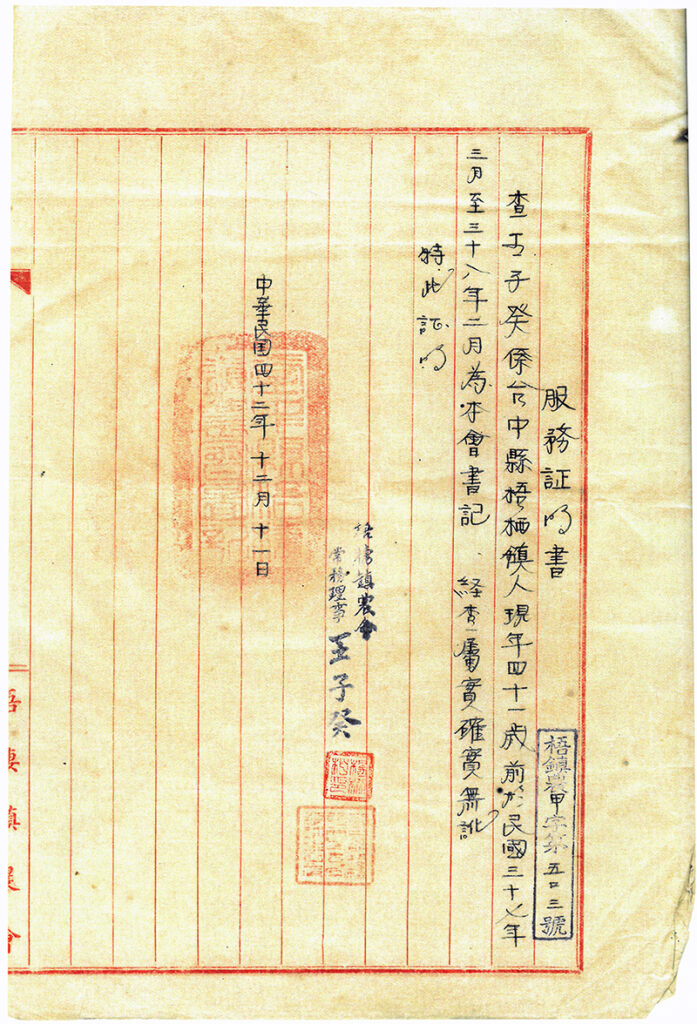 服務証明書
梧鎮農甲字第五〇三號
查王子癸係台中縣梧栖鎮人現年四十一歲前於民國三十七年
三月至三十八年二月為本會書記、経查屬實確實無訛
特此証明
梧栖鎮農會
常務理事 王子癸
中華民国四十二年十二月十一日
梧棲鎮農會